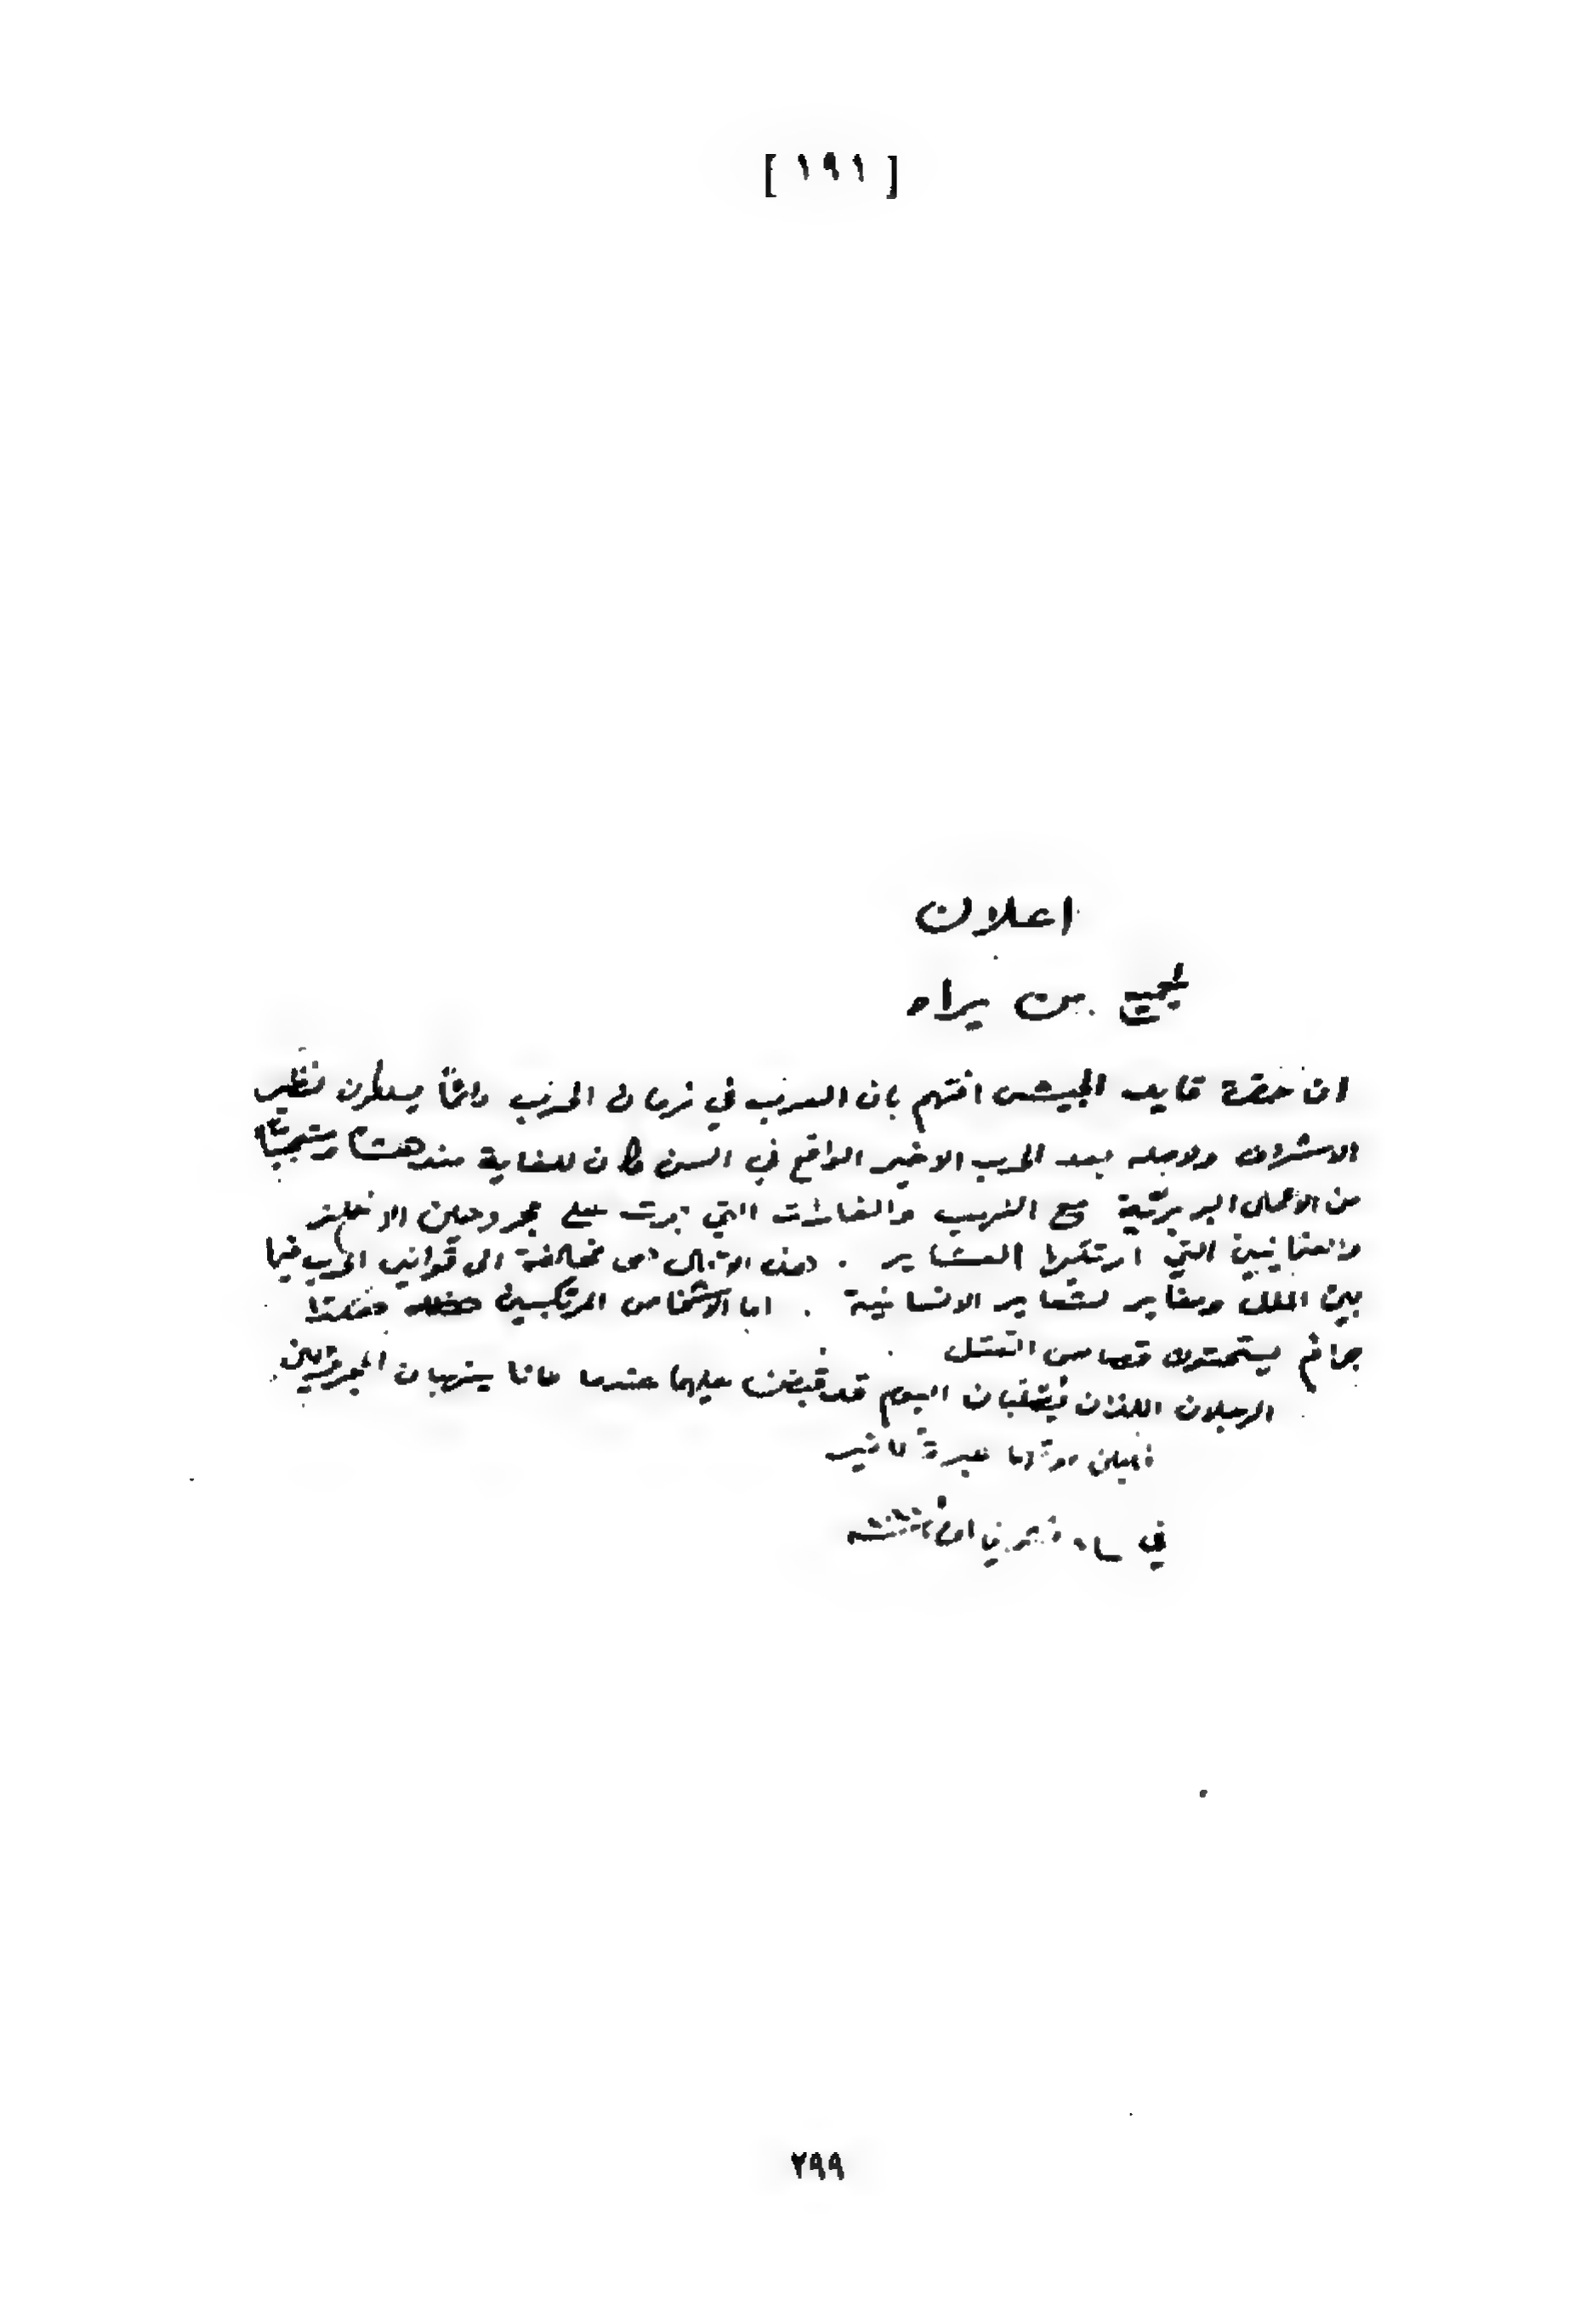 [ ١٩١ ]
اعلان
لجميع من يراه
ان حضرة قايد الجيش افتهم بان العرب في زمان الحرب دائماً يسلكون نظير
الاشراف ولاجله بعد الحرب الاخير الواقع في السن كان للغاية مندهشاً ومتعجباً
من الاعمال البربريّة مع النهب والغارات التي جرت على مجروحين الانكليز
والعثمانيين التي ارتكبها العشاير . هي مخالفة الى قوانين الحرب فيما
بين الملل ومغاير لشعاير الانسانية . اما الاشخاص المرتكبين هكذا
جرائم يستحقون قصاص القتل
الرجلان اللذان يُصلبان اليوم قد قبضنا عليهما عندما كانا ينهبان المجروحين
فليكن موتهما عبرة للغير
في
٢٩٩